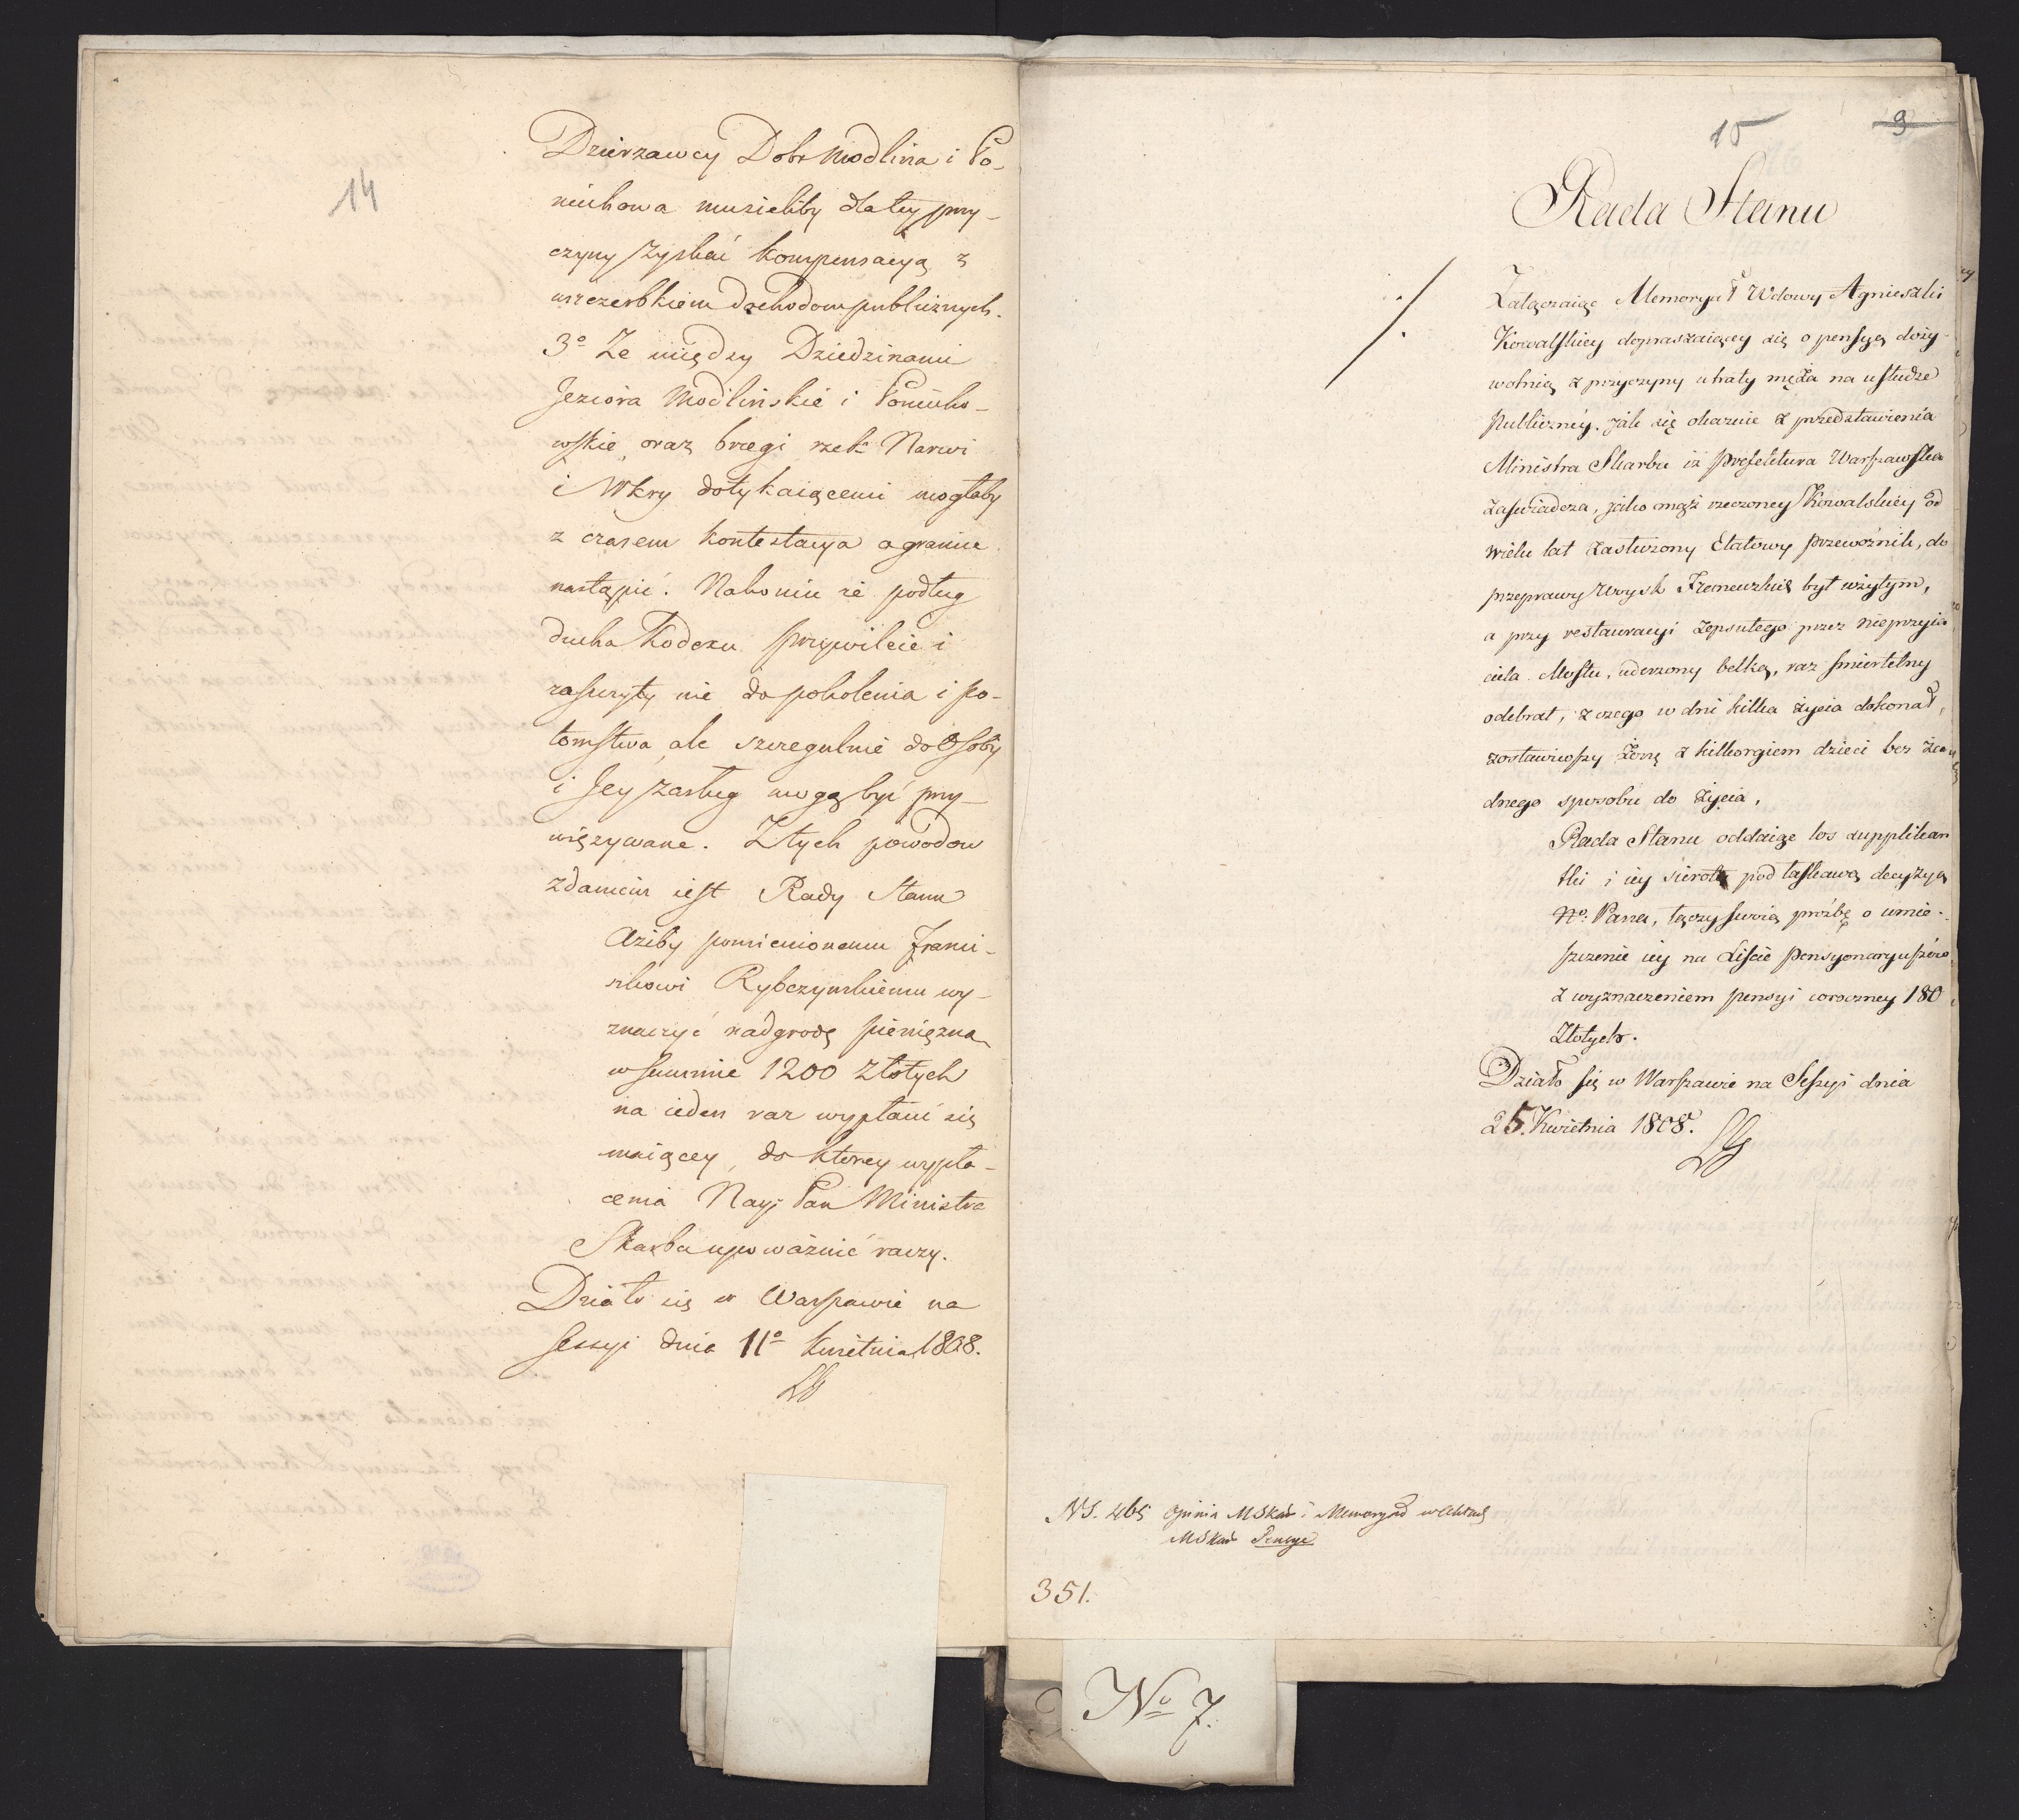 14
Dzierzawcy Dobr Modlina i Po-
niichowa musieliby dla tey przy-
czyny zyskać kompensacyą z
uszczerbkiem dochodow publicznych.
3o Ze między Dziedzinami
Jeziora Modlińskie i Poniicho-
wskie, oraz brzegi rzek Narwi
i Wkry dotykaiącemi mogłaby
z czasem kontestacya o granice
nastąpić. Nakoniec że podług
ducha Kodexu przywileie i
zaszczyty nie do pokolenia i po-
tomstwa, ale szczegulnie do Osoby
i Jey zasług mogą być przy-
więzywane. Z tych powodow
zdaniem iest Rady Stanu
Ażeby pomienionemu Franci-
szkowi Rybczynskiemu wy-
znaczyć nadgrodę pienięzną
w summie 1200 Złotych
na ieden raz wypłacić się
maiącey, do ktorey wypła-
cenia Nayj Pan Ministra
Skarbu upoważnić raczy.
Działo się w Warszawie na
Sessyi dnia 11o Kwietnia 1808.
15
9
Rada Stanu
Załączaiąc Memoryał Wdowy Agnieszki
Kowalskiey dopraszaiącey się o pensyą doży-
wotnią z przyczyny utraty męża na usłudze
Publiczney. Jak się okazuie z przedstawienia
Ministra Skarbu iż Prefektura Warszawska
zaświadcza, jako mąż rzeczoney Kowalskiey od
wielu lat zasłużony Etatowy przewoźnik, do
przeprawy Woysk Francuzkich był użytym,
a przy restauracyi zepsutego przez nieprzyia
ciela Mostu, uderzony belką, raz śmiertelny
odebrał, z czego w dni kilka życia dokonał,
zostawiwszy Żonę z kilkorgiem dzieci bez ża-
dnego sposobu do życia,
Rada Stanu oddaiąc los supplikan
tki i iey sierot pod łaskawą decyzyą
No. Pana, łączy swoią prośbę o umie-
szczenie iey na Liście Pensyonaryuszów
z wyznaczeniem pensyi roczney 180
Złotych.
Działo się w Warszawie na Sessyi dnia
25. Kwietnia 1808.
NS. 465 Opinia MSkar i Memoryał w Aktach
MSkar Pensye
351.
No 7.